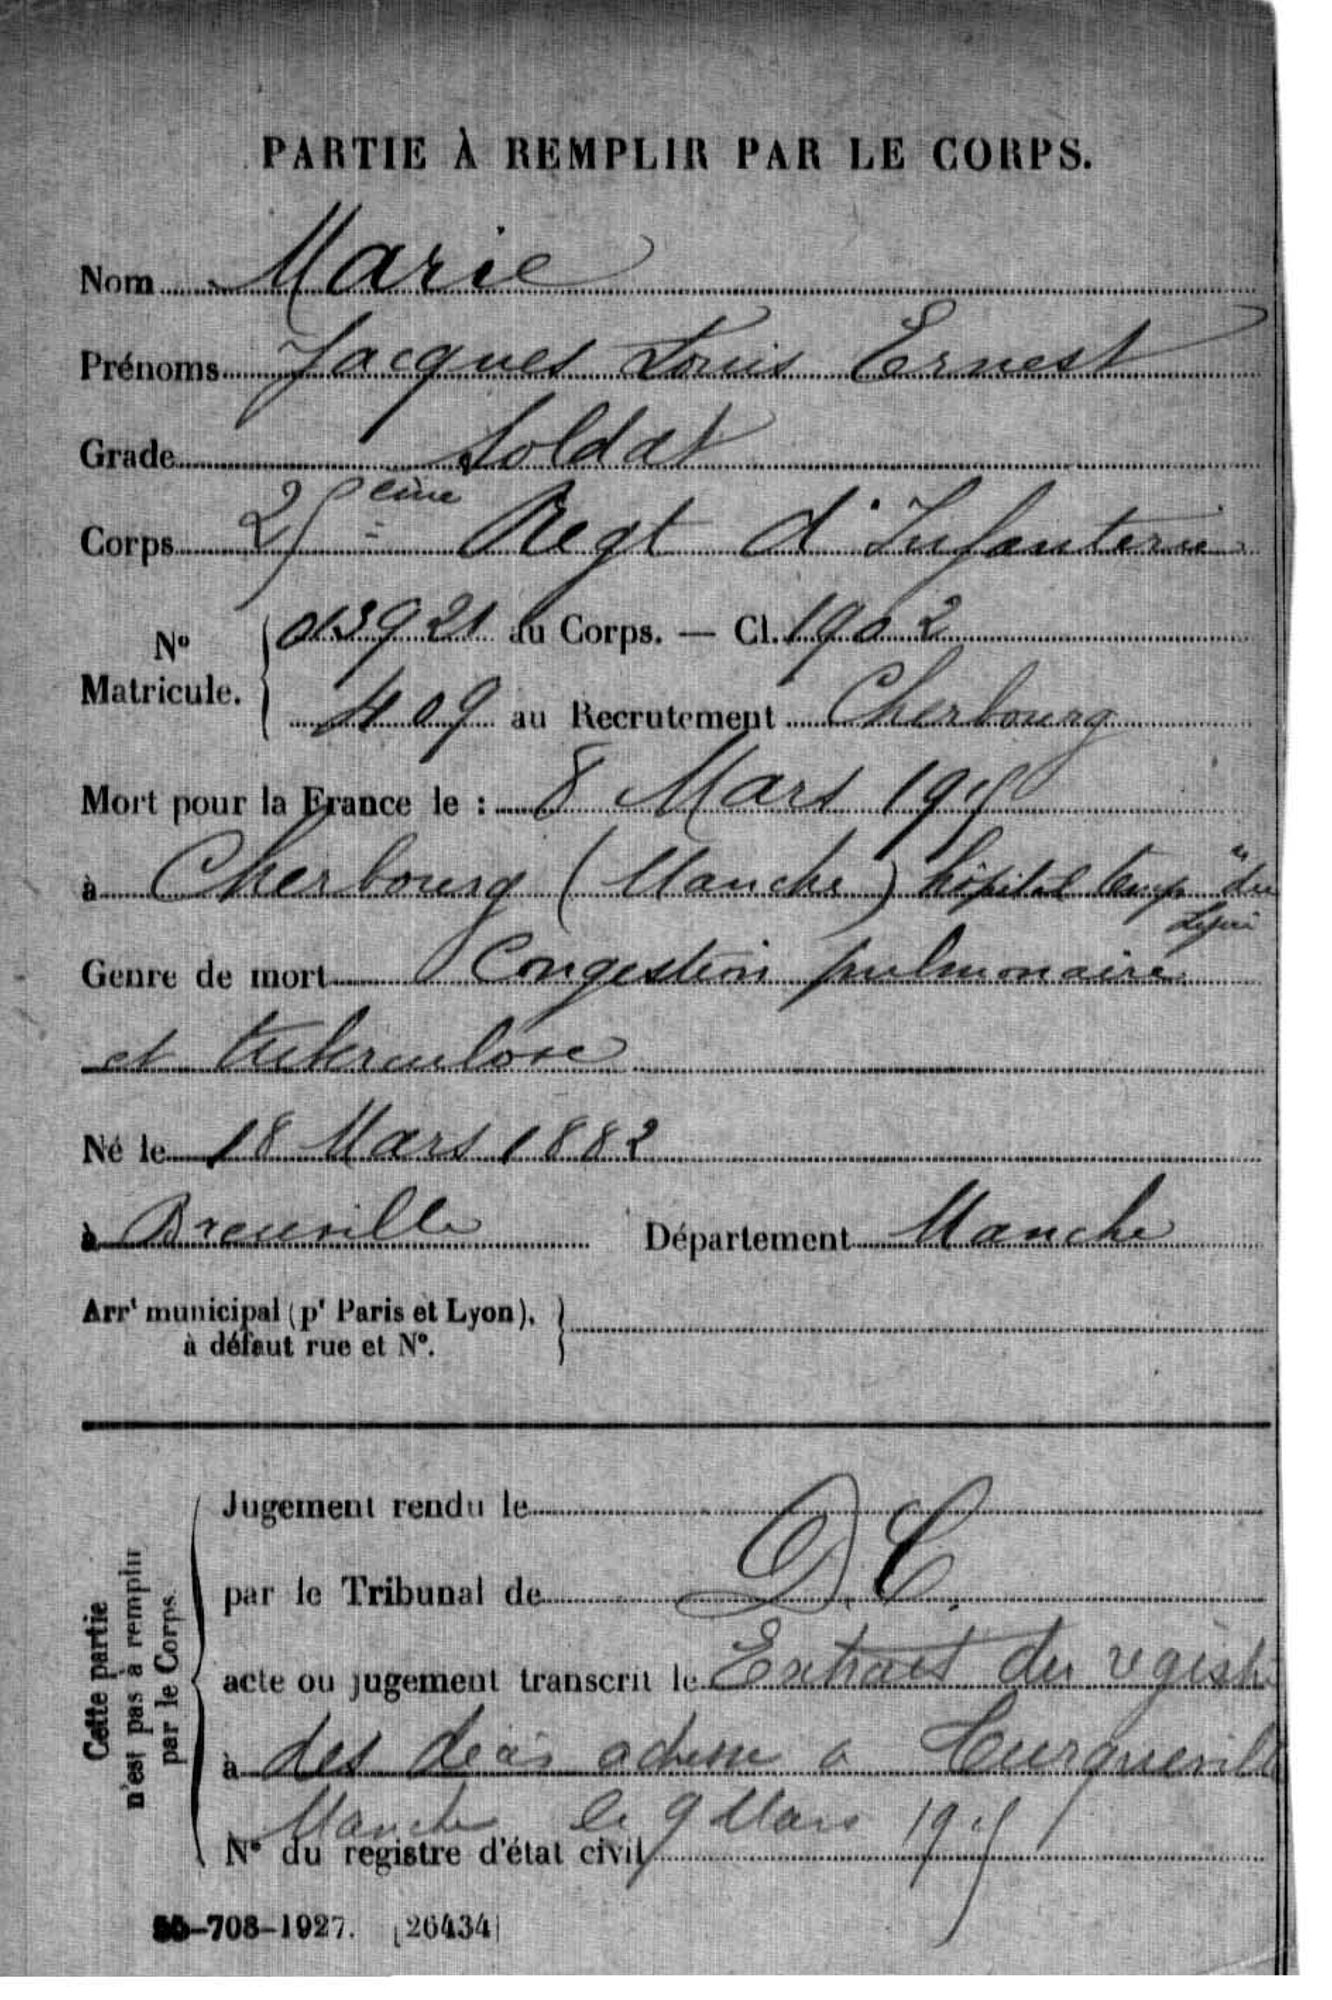 PARTIE À REMPLIR PAR LE CORPS.
Nom Marie
Prénoms Jacques Louis Ernest
Grade Soldat
Corps 25ème Regt d'Infanterie
No Matricule. 013921 au Corps. — Cl. 1902
409 au Recrutement Cherbourg
Mort pour la France le : 8 Mars 1915
à Cherbourg (Manche) hôpital temp re du
Genre de mort Congestion pulmonaire
et tuberculose
Né le 18 Mars 1882
à Breuville Département Manche
Arrt municipal (pr Paris et Lyon),
à défaut rue et No.
Jugement rendu le
par le Tribunal de D.C.
acte ou jugement transcrit le Extrait du regist
à des décès adressé à Turqueville
Manche le 9 Mars 1915
No du registre d'état civil
Cette partie
n'est pas à remplir
par le Corps.
-708-1927. [26434]